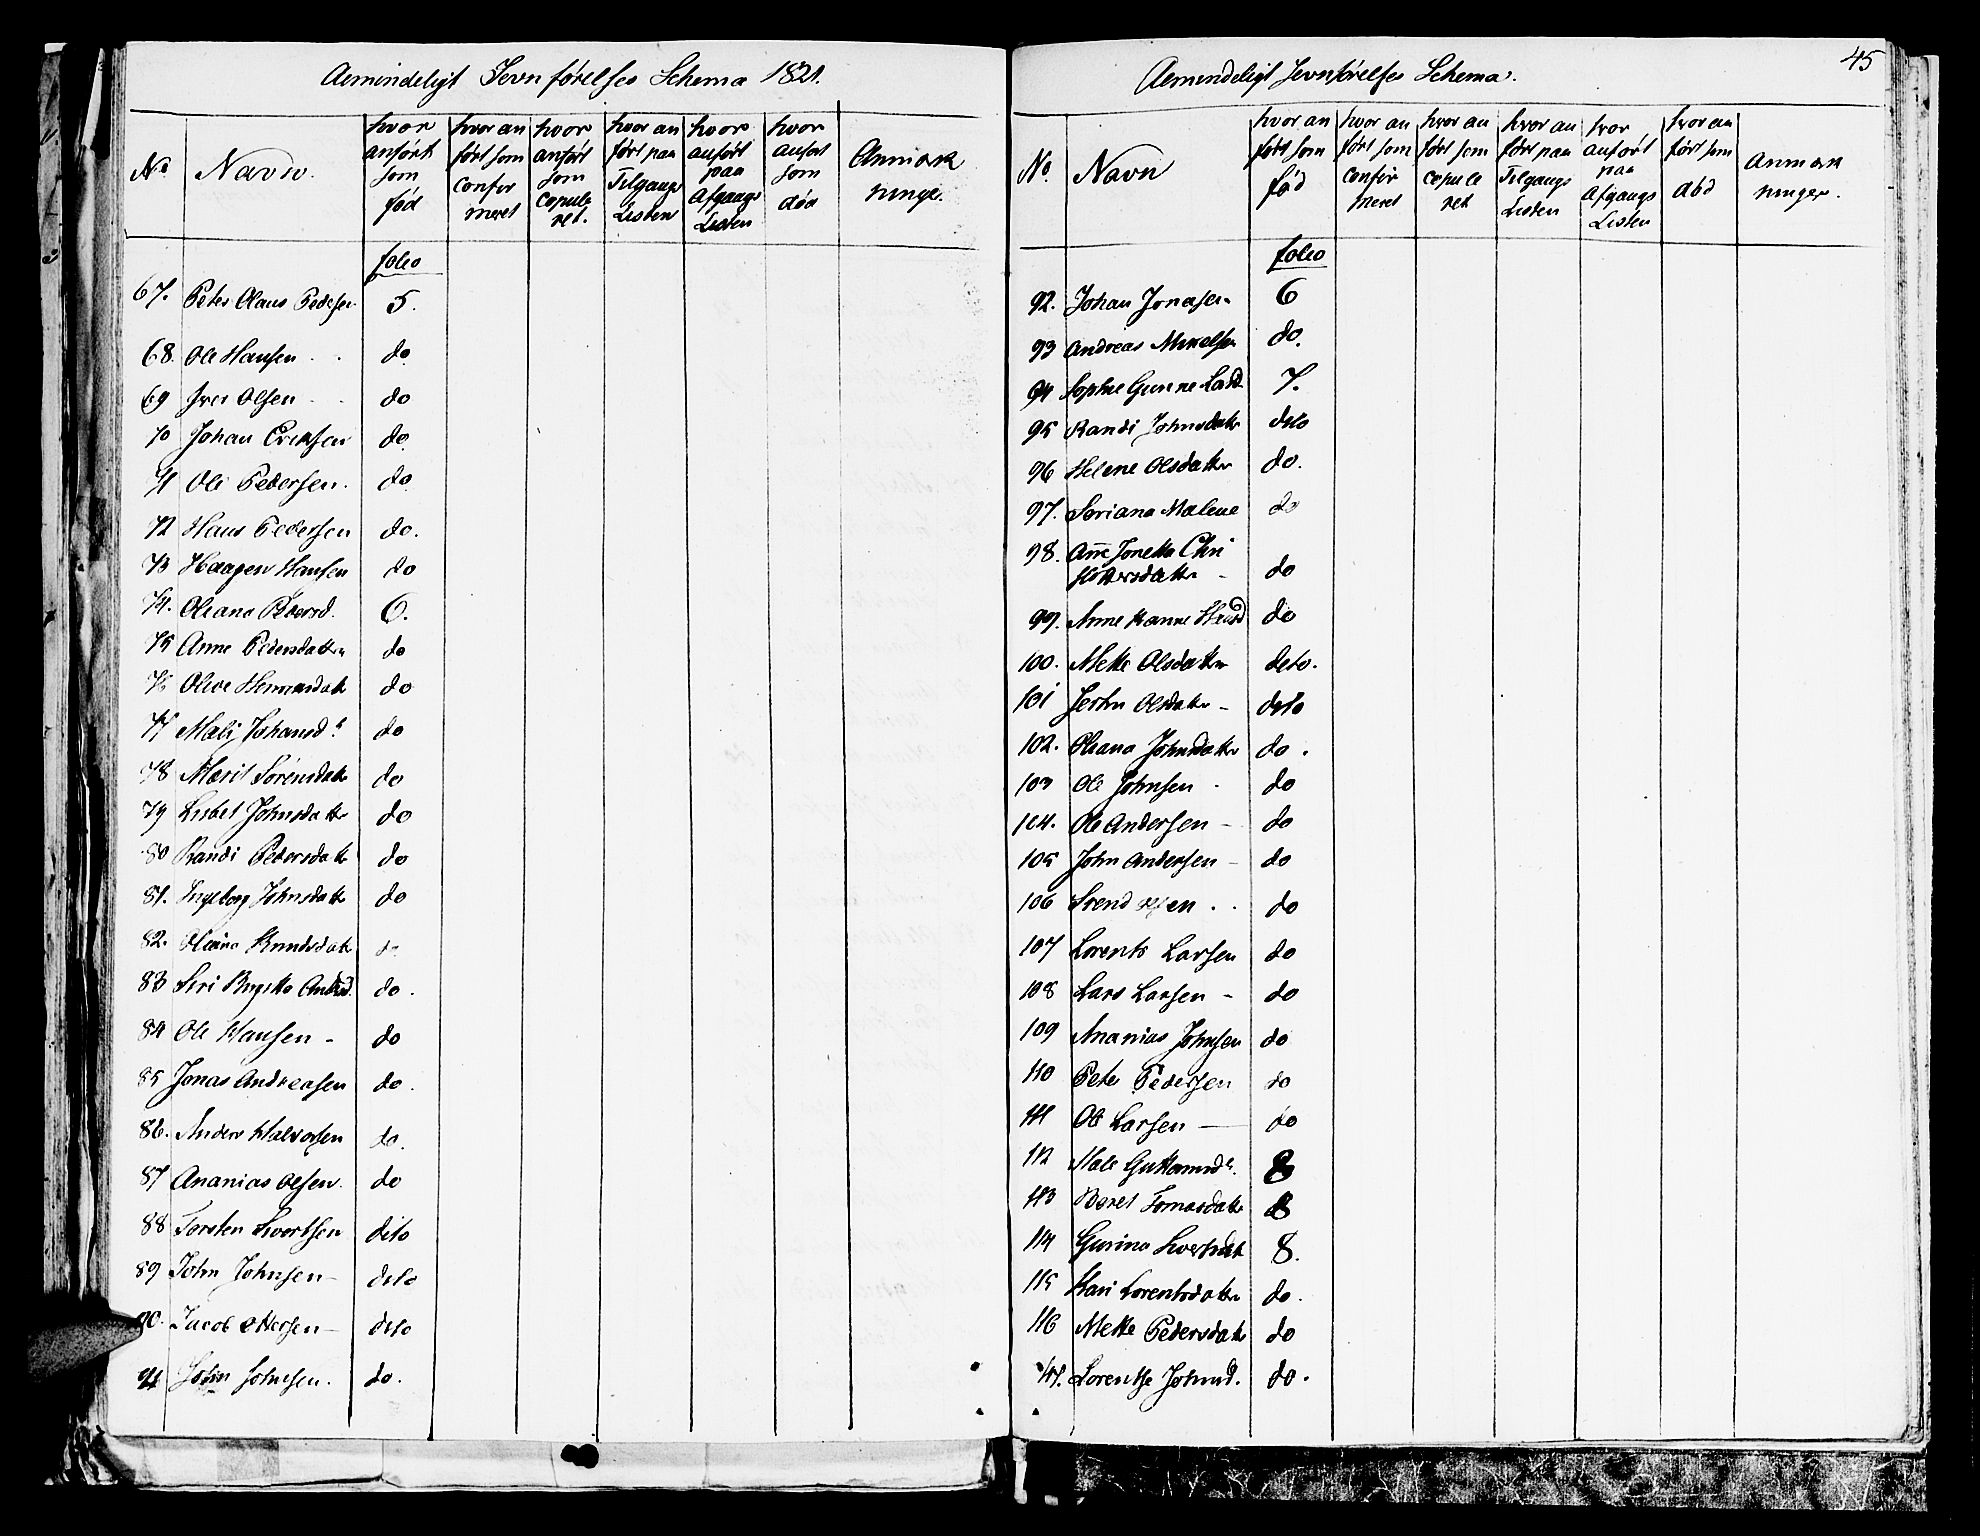 Almindeligt Jevnførelses Schema 1821.
No Navn. hvor anført som fød hvor anført som confirmeret hvor anført som copuleret. hvor an ført paa Tilgangs Listen hvor anført paa Afgangs Listen hvor anført som død Anmærkninger
folio
67. Peter Olaus Pedersen 5.
68. Ole Hansen do
69 Iver Olsen do
70 Johan Ericksen do
71 Ole Pedersen. do
72 Hans Pedersen do.
73 Haagen Hansen do
74. Oleana Pedersd. 6.
75 Anne Pedersdatter do
76 Olive do
77 Mali Johansd. do
78 Marit Sørensdatt do
79 Lisbet Johnsdatter do
80 Randi Pedersdatt do
81. Ingeborg Johnsdatt do
82. Oleana Knudsdatt do
83 Siri do.
84 Ole Hansen - do
85 Jonas Andreasen do.
86. Anders Halvorsen do.
87 Ananias Olsen. do
88 Torsten Sivertsen dito
89 John Johnsen - dito
90. Jacob Ottersen - dito
91 John Johnsen. do.
45
Almindeligt Jevnførelses Schema.
No. Navn hvor an ført som fød hvor an ført som confirmeret hvor an ført som copuleret hvor an ført paa Tilgangs Listen hvor anført paa Afgangs Listen hvor an ført som død Anmærkninger.
folio
92. Johan Jonasen 6
93 Andreas Mikelsen do.
94 Sophie Gunne Larsd 7.
95 Randi Johnsdatter dito
96 Helene Olsdatter do.
97. Seriana Malene do
98. Ane Jonetta Christoffersdatter - do
99. Anne Hansd do
100. Mette Olsdatter dito.
101 Olsdatter - dito
102. Oleana Johnsdatter do.
103 Ole Johnsen - do
104. Ole Andersen - do
105 John Andersen - do
106 Svend Olsen . . do
107 Lorents Larsen do
108 Lars Larsen - do
109 Ananias Johnsen do
110 Peter Pedersen do
111 Ole Larsen - do
112 8
113 Beret Tomasdatter 8
114 Gurina Sivertsdatt 8.
115 Kari Lorentsdatter do.
116 Mette Pedersdatt do
117. Lorentse Johnsd. do.